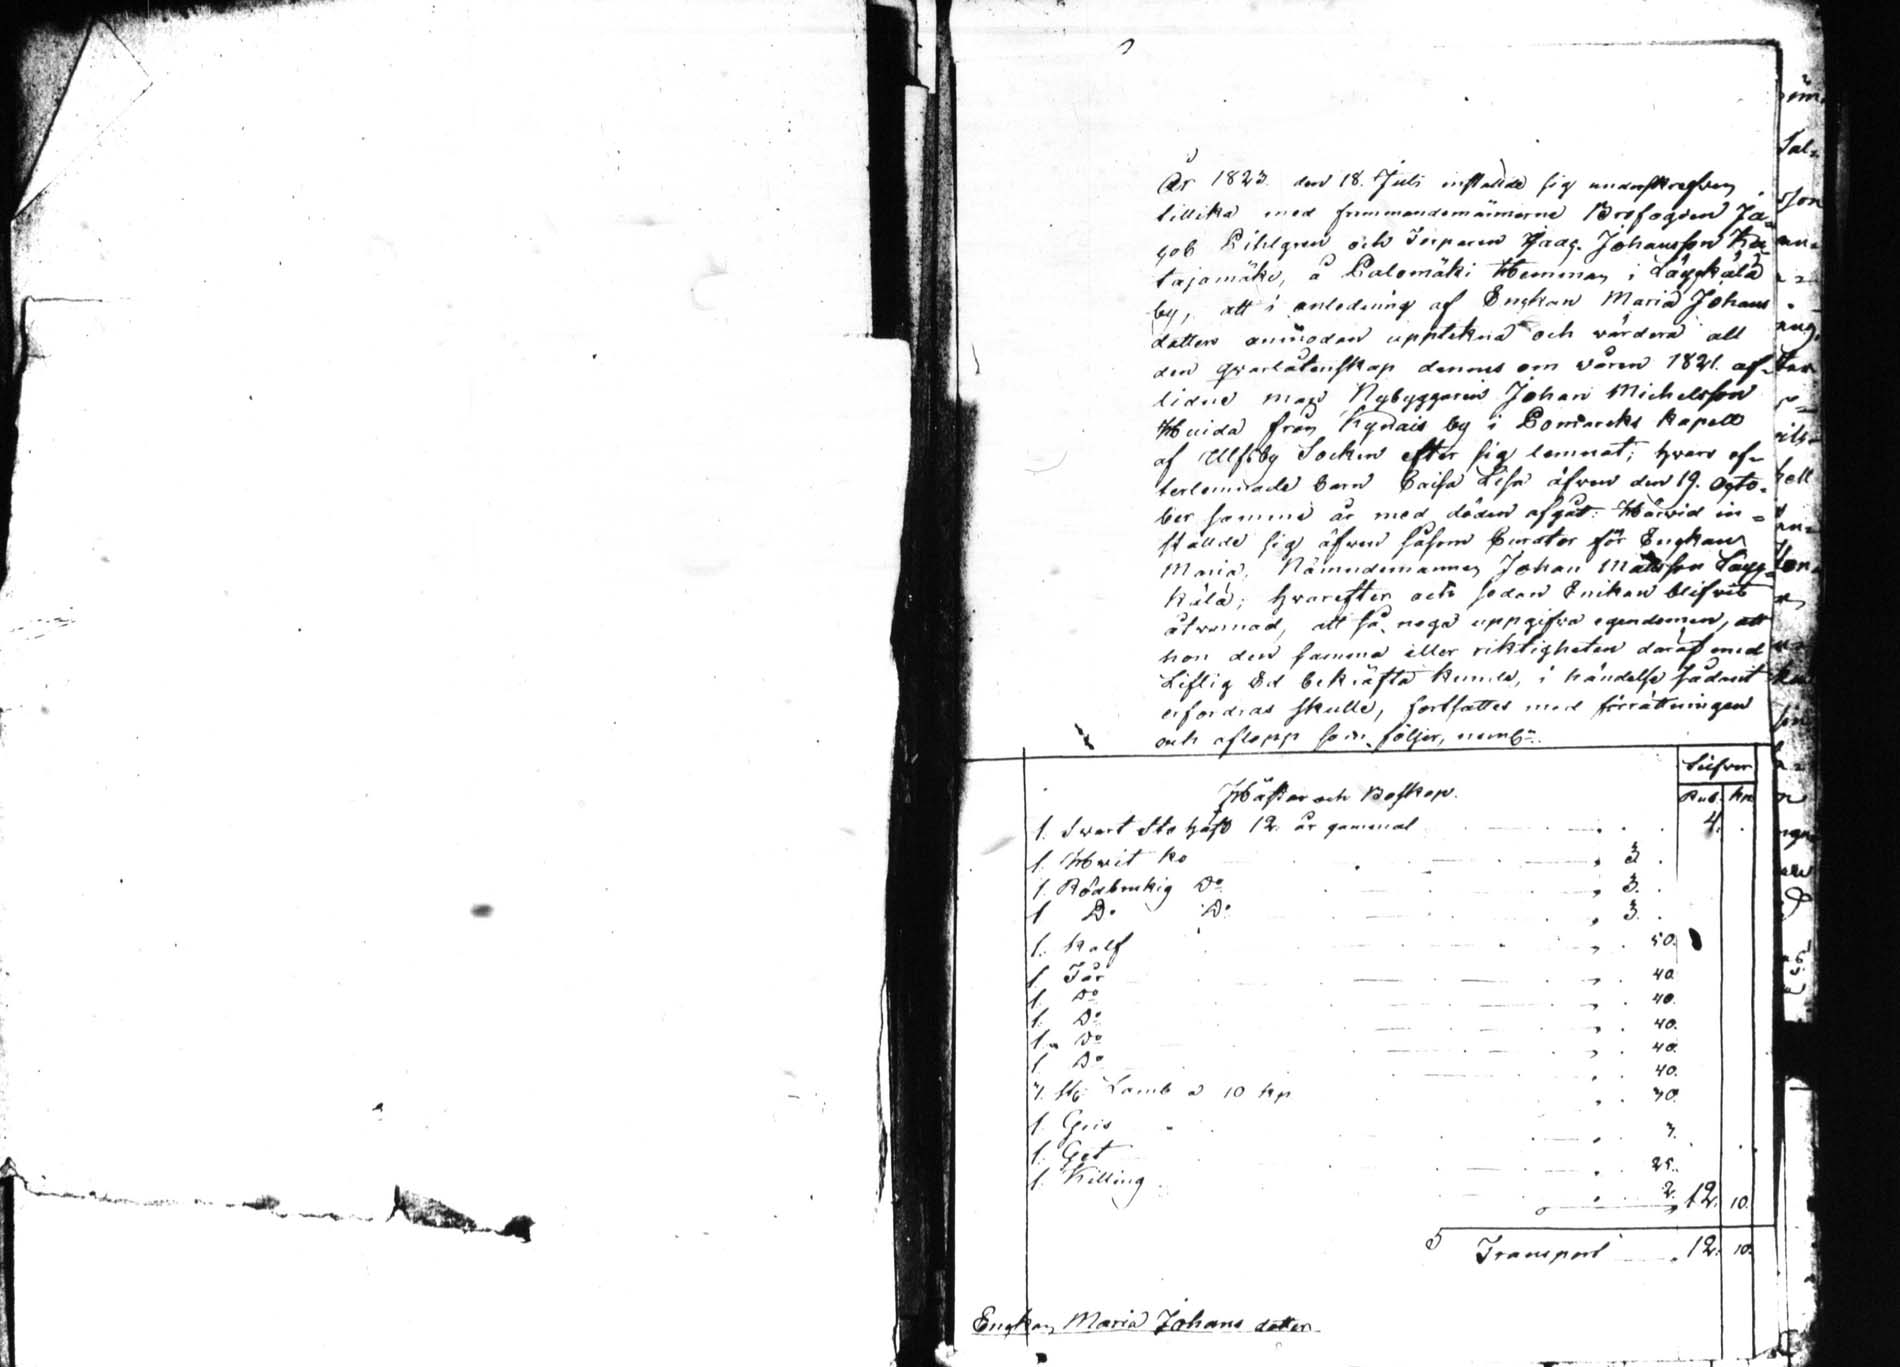 År 1823. den 18. Juli inställde sig undertskrefven
tillika med frimmandemännerne Brofogden Ja-
cob Pihlgren och Torparen Isaac Johansson Ka-
tajamäki, å Palomäki Hemman i Läyskälä
by, att i anledning af Enkan Maria Johans
dotters anmodan uppteckna och värdera all
den qvarlåtenskap dennes om våren 1821. af-
lidne man Nybyggaren Johan Michelsson
Huida från Kynäis by i Pomarcks Kapell
af Ulfsby Socken efter sig lemnat; hvars ef-
terlemnade barn Caisa Lisa äfven den 19. Octo-
ber samma år med döden afgåt. Härvid in-
ställde sig äfven såsom Curator för Enkan
Maria, Nämndemannen Johan Matsson Läys-
kälä; hvarefter och sedan Enkan blifvit
åtvarnad, att så noga uppgifva egendomen, att
hon den samma eller riktigheten deraf med
Liflig Ed bekräfta kunde, i händelse sådant
erfordras skulle, fortsattes med förrättningen
och aflopp som följer, neml:
Silfver
Hästar och Boskap. Rub. Kp.
1. Svart Sto häst 12 år gammal 4.
1. Hvit Ko 3.
1. Rödbrukig Do 3.
1 Do Do 3.
1. Kalf 50.
1. Får 40.
1. Do 40.
1. Do 40.
1. Do 40.
1. Do 40.
7. st. Lamb a 10 Kp 70.
1. Gris 3.
1. Get 25.
1. Killing 2. 12. 10.
Transport 12. 10.
Enkan Maria Johans dotter